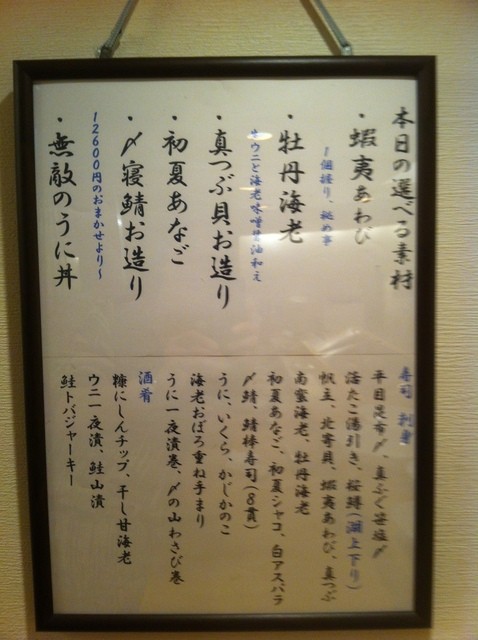 本日の選べる素材
・蝦夷あわび
・牡丹海老
生ウニと海老味噌醤油和え
・真つぶ貝お造り
・初夏あなご
・〆寝鯖お造り
12600円のおまかせより〜
・無敵のうに丼
寿司 刺身
平目昆布〆、真ふぐ笹塩〆
活たこ湯引き、桜鱒(湖上下り)
帆立、北寄貝、蝦夷あわび、真つぶ
南蛮海老、牡丹海老
初夏あなご、初夏シャコ、白アスパラ
〆鯖、鯖棒寿司(8貫)
うに、いくら、かじかのこ
海老おぼろ重ね手まり
うに一夜漬巻、〆の山わさび巻
酒肴
糠にしんチップ、干し甘海老
ウニ一夜漬、鮭山漬
鮭トバジャーキー